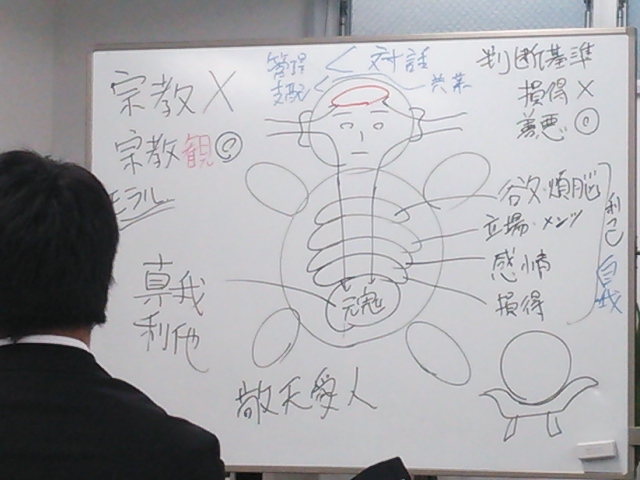 宗教 ×
宗教観 ◎
モラル
真我
利他
管理 < 対話
支配 < 共業
判断基準
損得 ×
善悪 ◎
欲・煩悩
立場・メンツ
感情
損得
利己
自我
敬天愛人